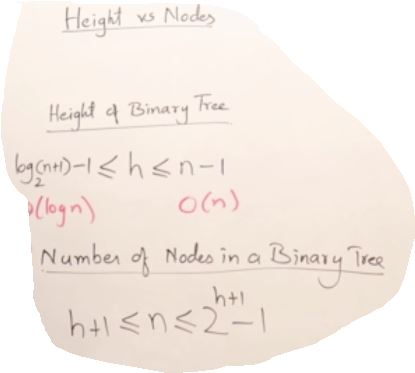 Height vs Nodes
Height of Binary Tree
log₂(n+1)-1 ≤ h ≤ n-1
O(logn) O(n)
Number of Nodes in a Binary Tree
h+1 ≤ n ≤ 2^(h+1) -1